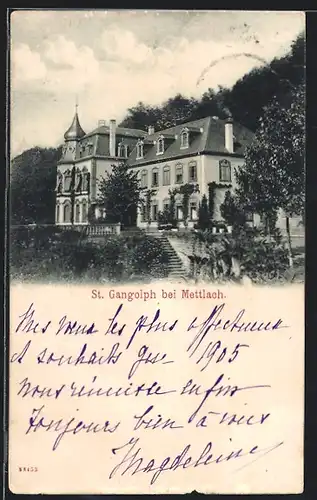 St. Gangolph bei Mettlach.
Mes vœux les plus affectueux
et souhaits que 1905
nous réunisse enfin
Toujours bien à vous
Magdeleine